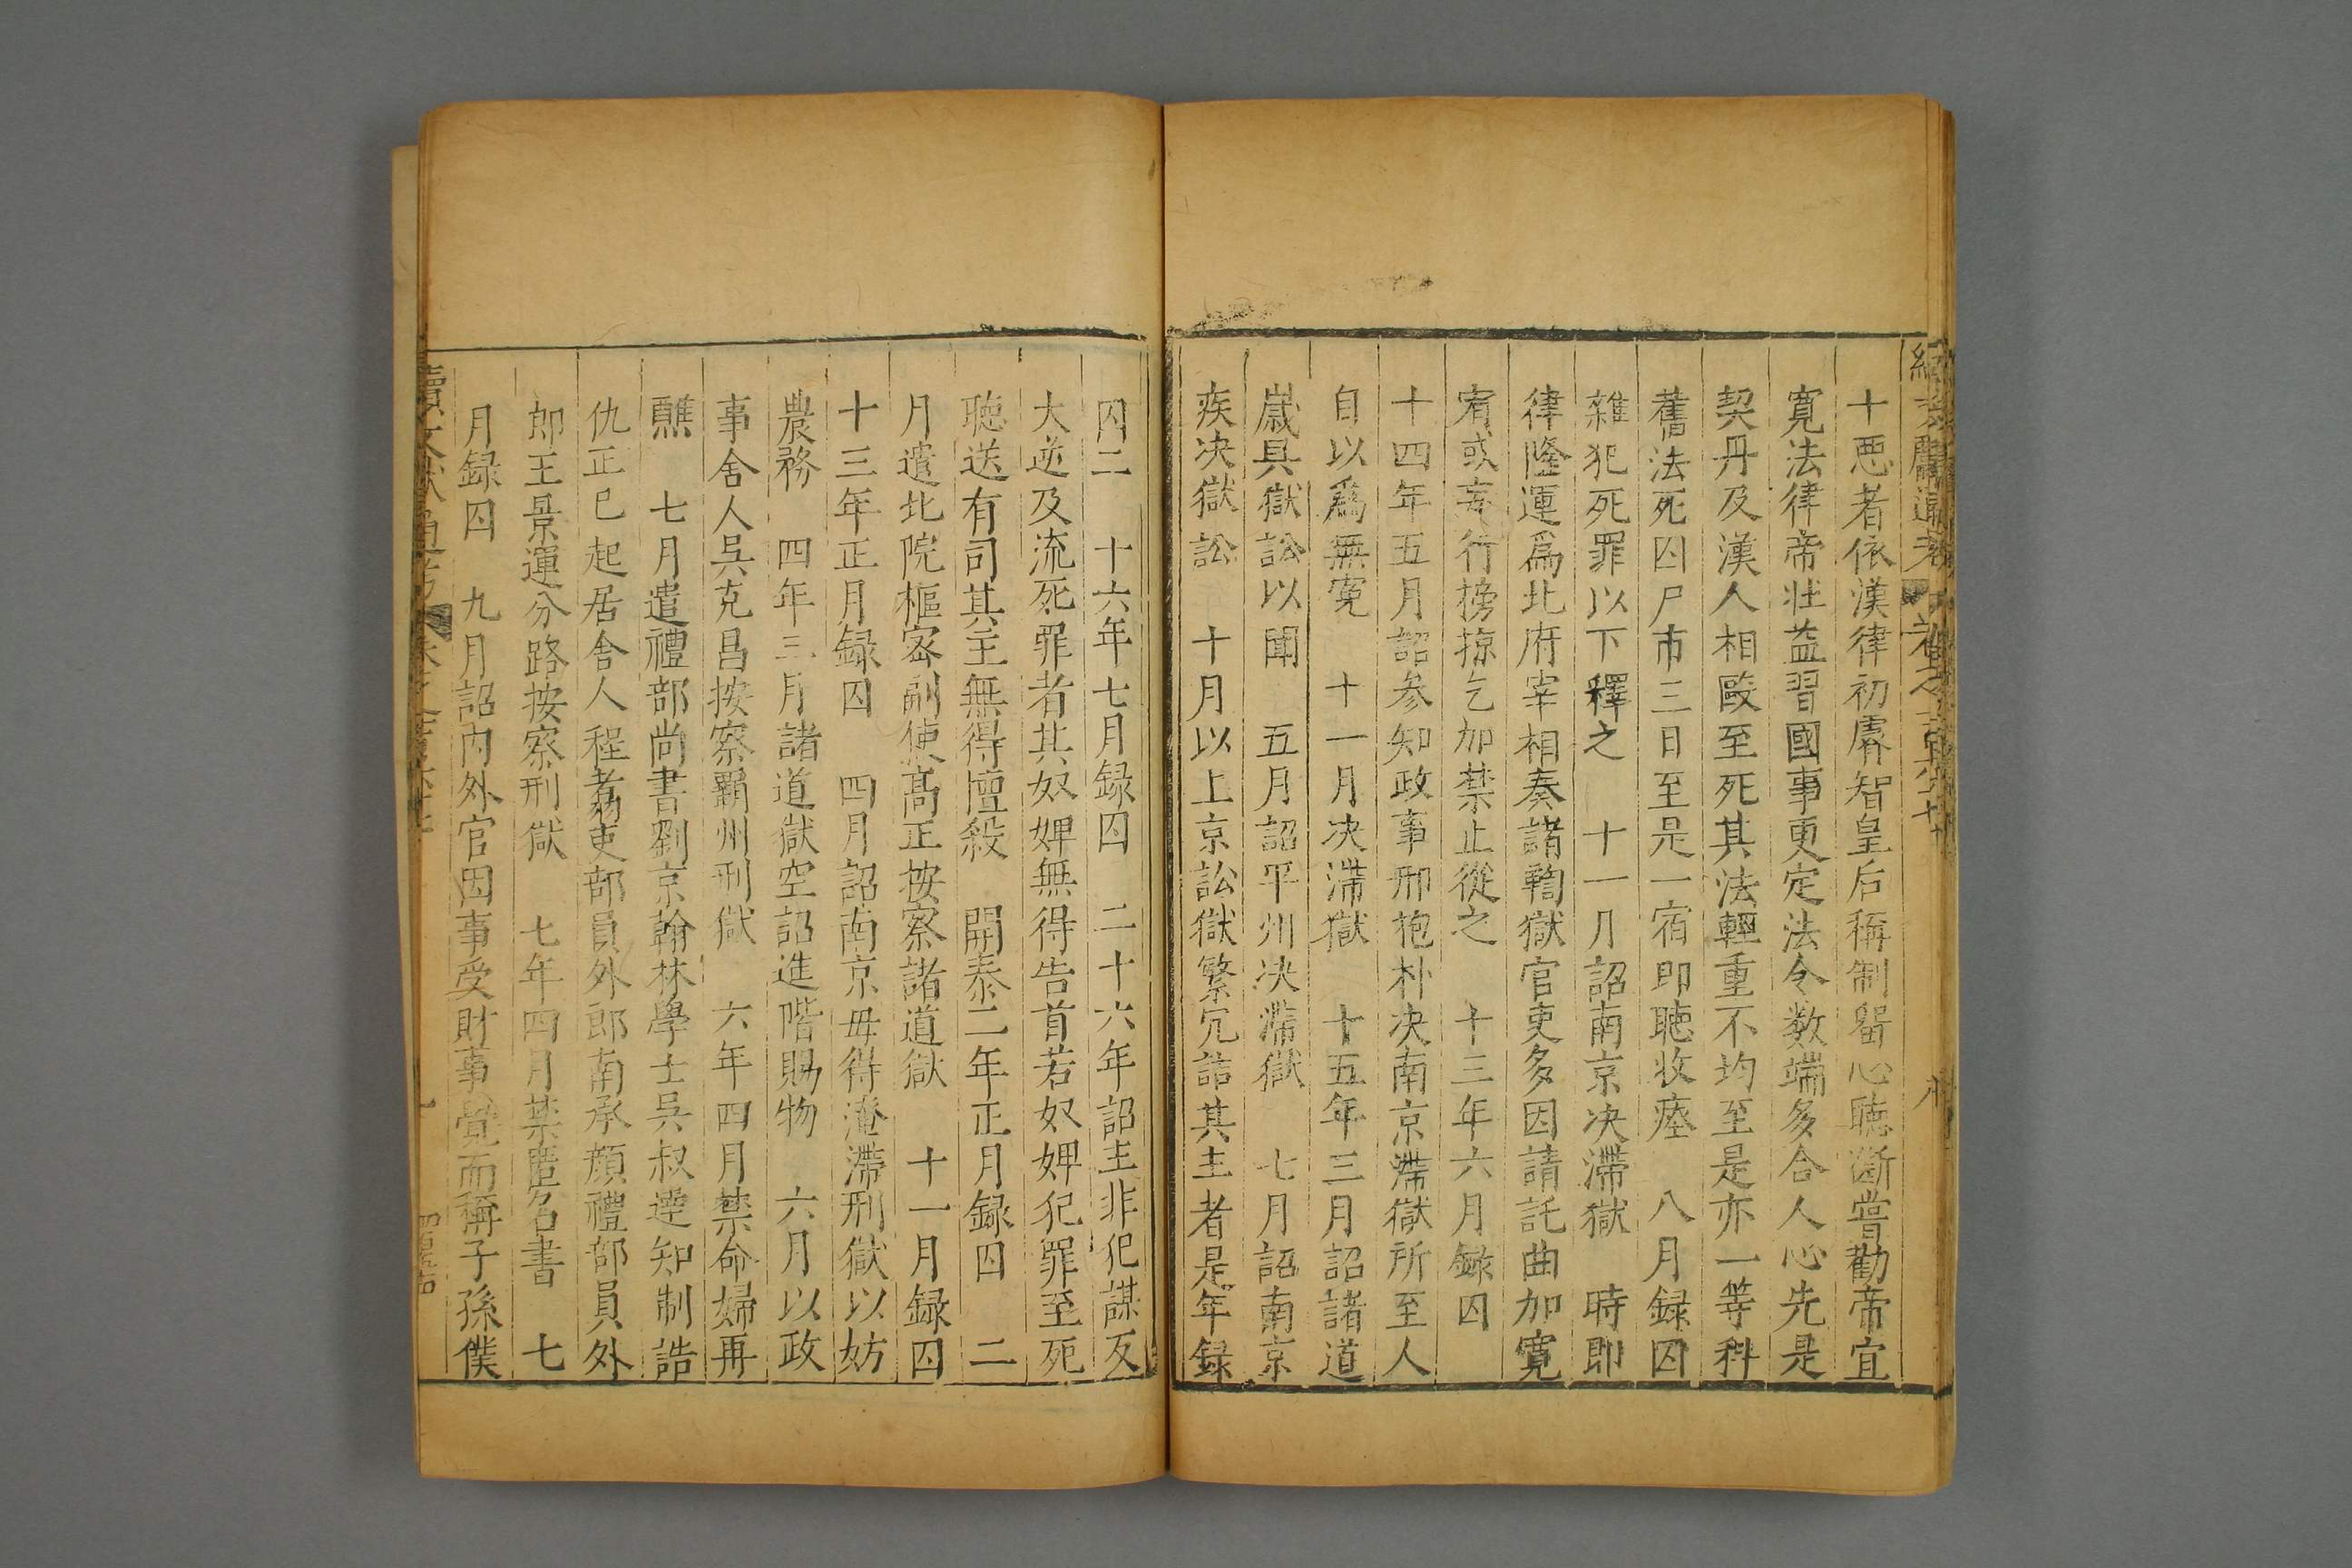 十惡者依漢律初睿智皇后稱制留心聽斷嘗勸帝宜
寬法律帝壯益習國事更定法令數端多合人心先是
契丹及漢人相毆至死其法輕重不均至是亦一等科
舊法死囚尸市三日至是一宿即聽收瘞　八月録囚
雜犯死罪以下釋之　十一月詔南京决滯獄　時即
律隆運爲北府宰相奏諸鞫獄官吏多因請託曲加寬
宥或妄行搒掠乞加禁止從之　十三年六月録囚
十四年五月詔參知政事邢抱朴决南京滯獄所至人
自以爲無寃　十一月决滯獄　十五年三月詔諸道
嵗具獄訟以聞　五月詔平州决滯獄　七月詔南京
疾决獄訟　十月以上京訟獄繁冗詰其主者是年録
囚二　十六年七月録囚　二十六年詔主非犯謀反
大逆及流死罪者其奴婢無得告首若奴婢犯罪至死
聽送有司其主無得擅殺　開泰二年正月録囚　二
月遣北院樞密副使高正按察諸道獄　十一月録囚
十三年正月録囚　四月詔南京毋得淹滯刑獄以妨
農務　四年三月諸道獄空詔進階賜物　六月以政
事舍人吳克昌按察霸州刑獄　六年四月禁命婦再
醮　七月遣禮部尚書劉京翰林學士吳叔達知制誥
仇正己起居舍人程翥吏部員外郎南承顔禮部員外
郎王景運分路按察刑獄　七年四月禁匿名書　七
月録囚　九月詔内外官因事受財事覺而稱子孫僕